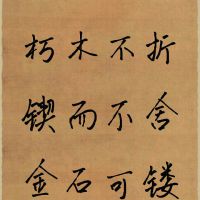 朽木不折
锲而不舍
金石可镂